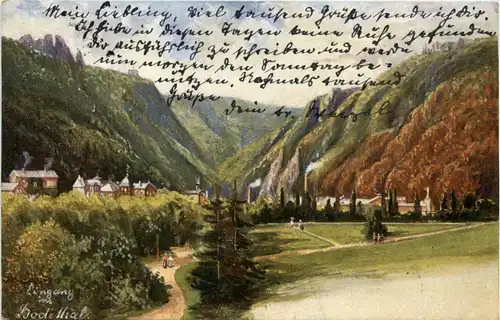 Mein Liebling, viel tausend Grüße sende ich dir.
Ich habe in diesen Tagen keine Ruh gefunden
dir ausführlich zu schreiben und werde
nun morgen den Sonntag be-
nützen. Nochmals tausend
Grüße dein tr.
Eingang
ins
Bodethal.